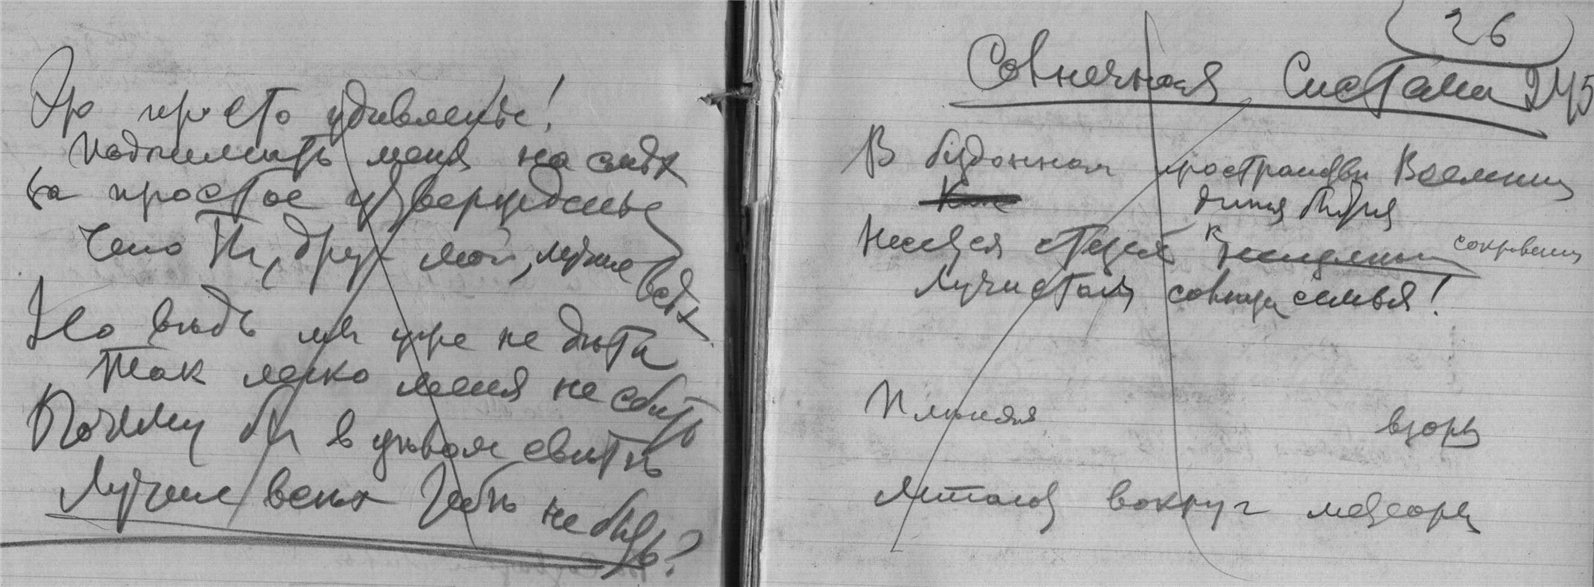 Это просто удивленье!
Поднимать меня на смѣх
За простое утвержденье
Что Ты, друг мой, лучше всѣх
Но вѣдь мы уже не дѣти
Так легко меня не сбить
Почему бы в цѣлом свѣтѣ
Лучше всѣх Тебѣ не быть?
26
Солнечная Система 245
В бездонном пространствѣ Вселенной
дитя бытія
Несется стезей сокровенной
Лучистая солнца семья!
Плѣняя взоры
Летают вокруг метеоры